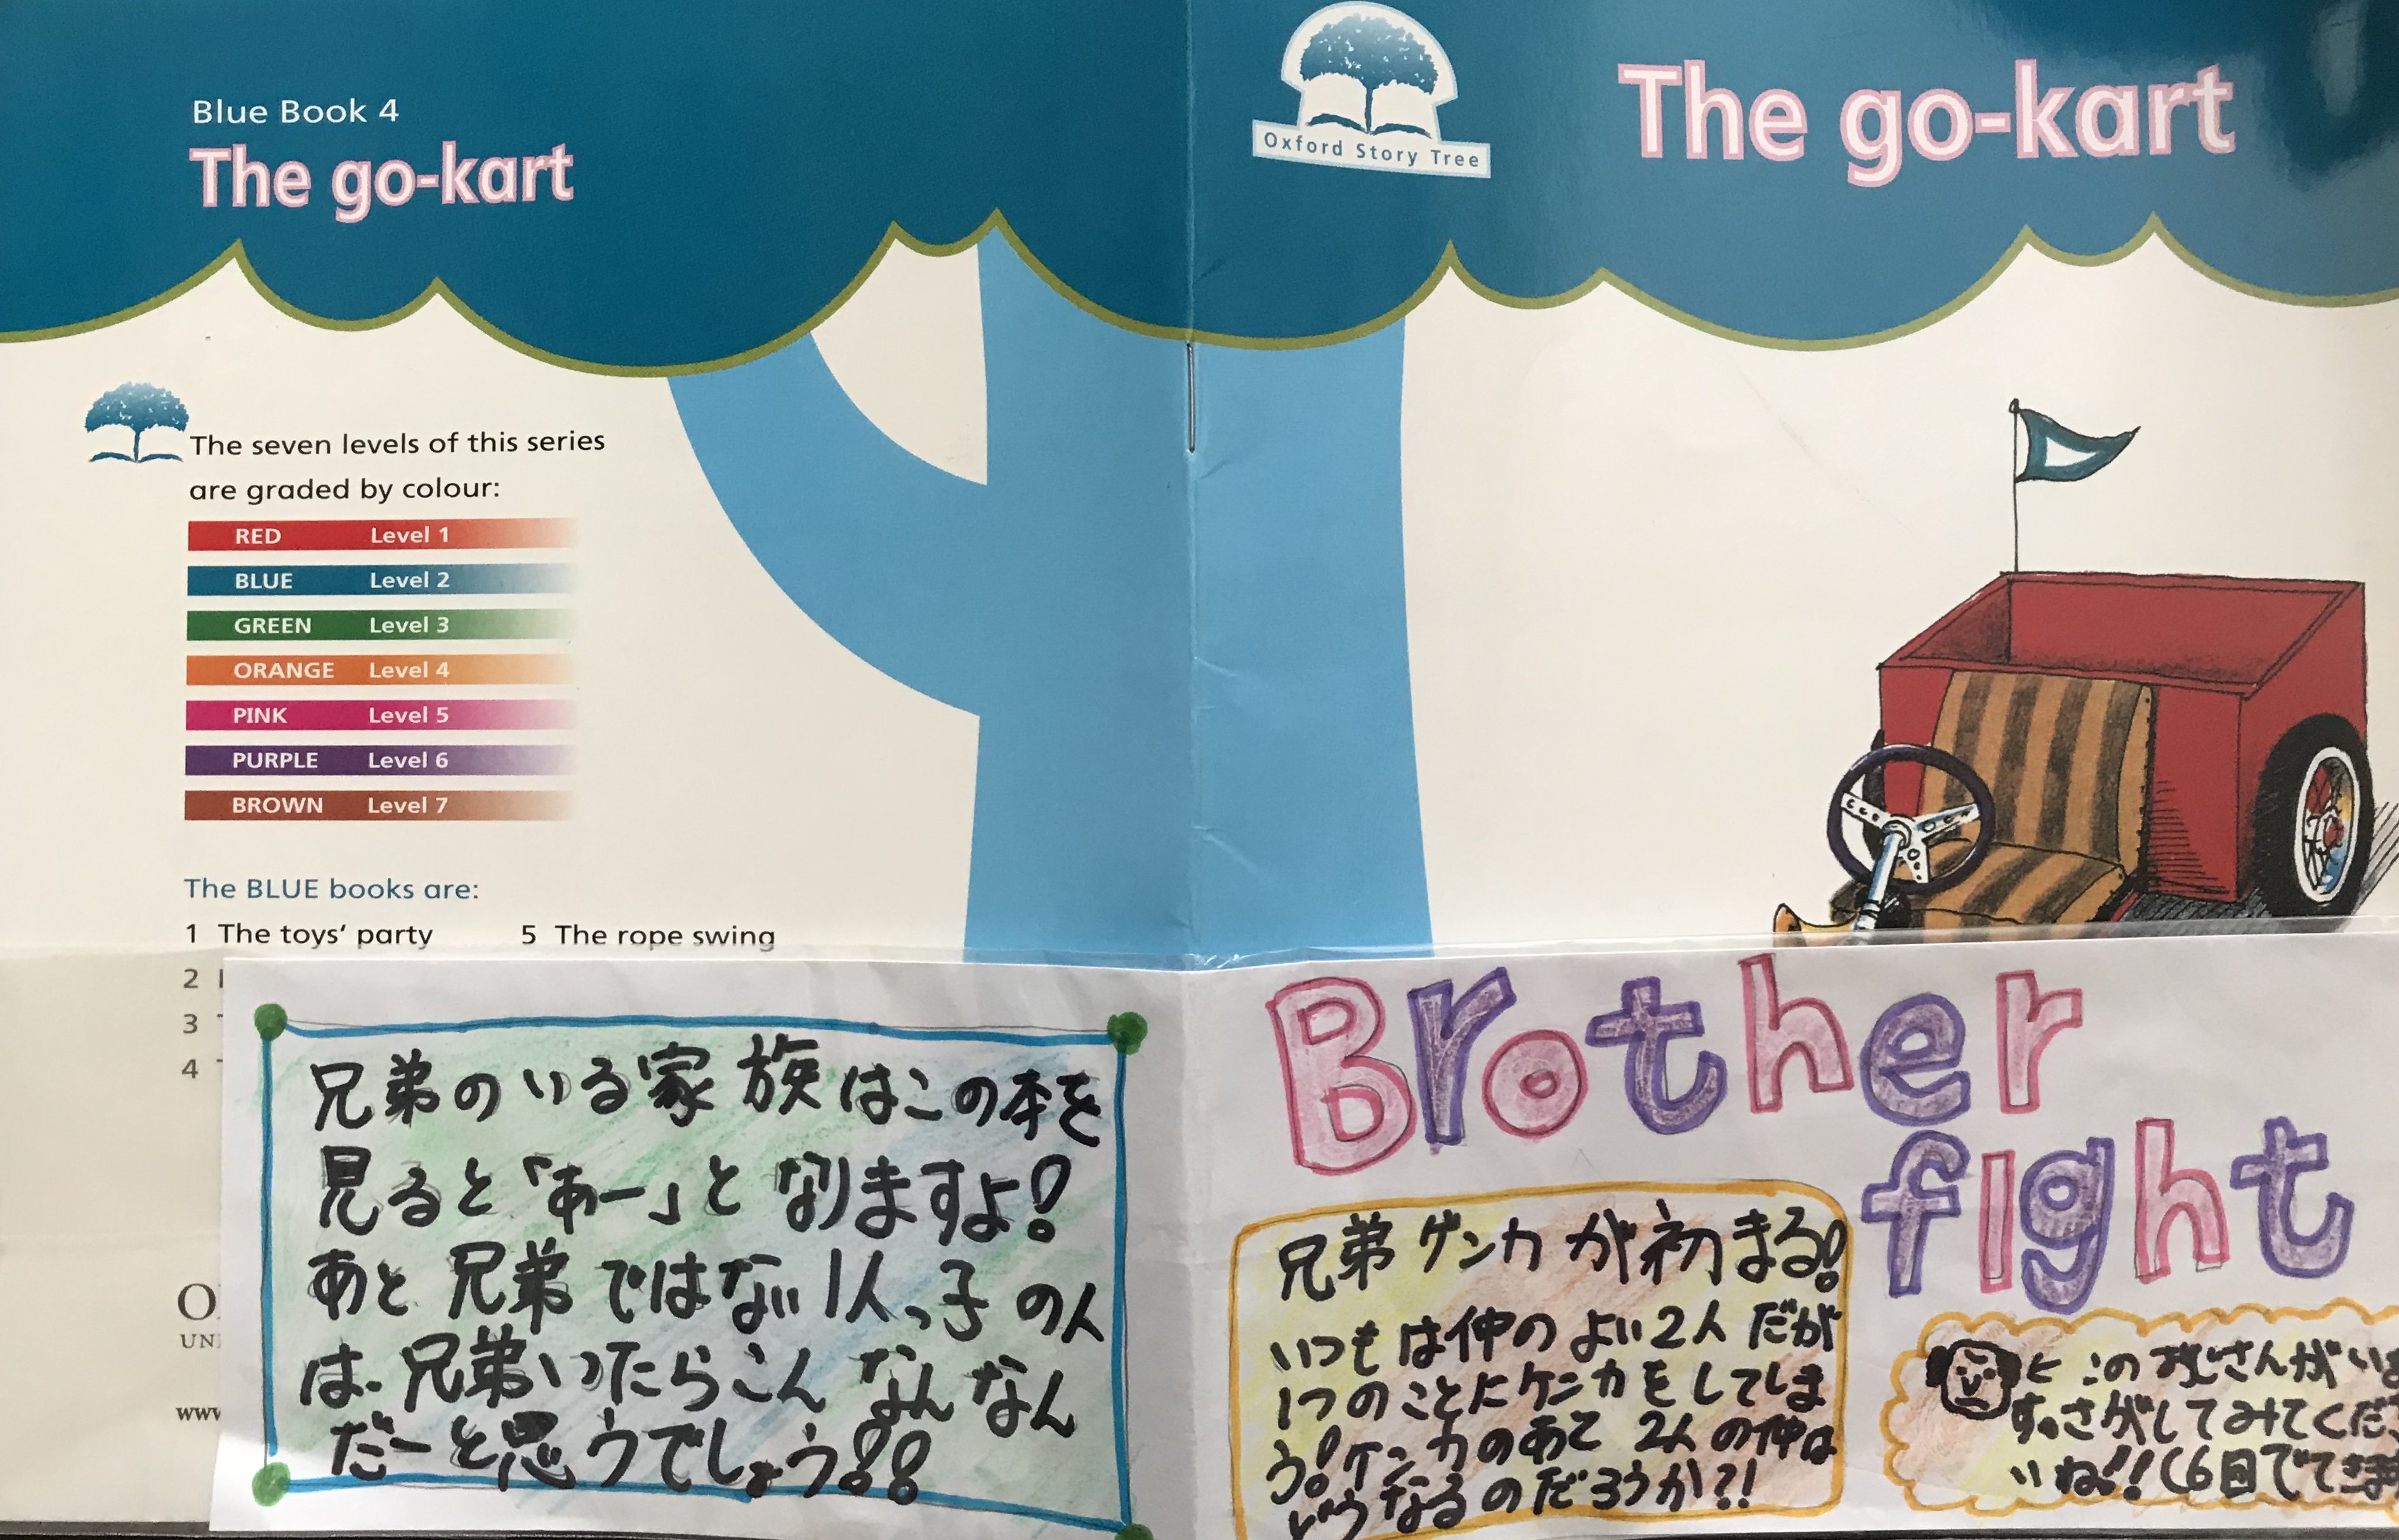 Blue Book 4
The go-kart
The seven levels of this series
are graded by colour:
RED Level 1
BLUE Level 2
GREEN Level 3
ORANGE Level 4
PINK Level 5
PURPLE Level 6
BROWN Level 7
The BLUE books are:
1 The toys' party 5 The rope swing
2
3
4
O
UN
www
兄弟のいる家族はこの本を
見ると「あー」となりますよ!
あと兄弟ではない1人っ子の人
は、兄弟いたらこんなんなん
だーと思うでしょう!!
Oxford Story Tree
The go-kart
Brother
fight
兄弟ゲンカが初まる!
いつもは仲のよい2人だが
1つのことにケンカをしてしま
う!ケンカのあと2人の仲は
どうなるのだろうか?!
とこのおじさんがいま
す。さがしてみてくださ
いね!!(6回でてきま